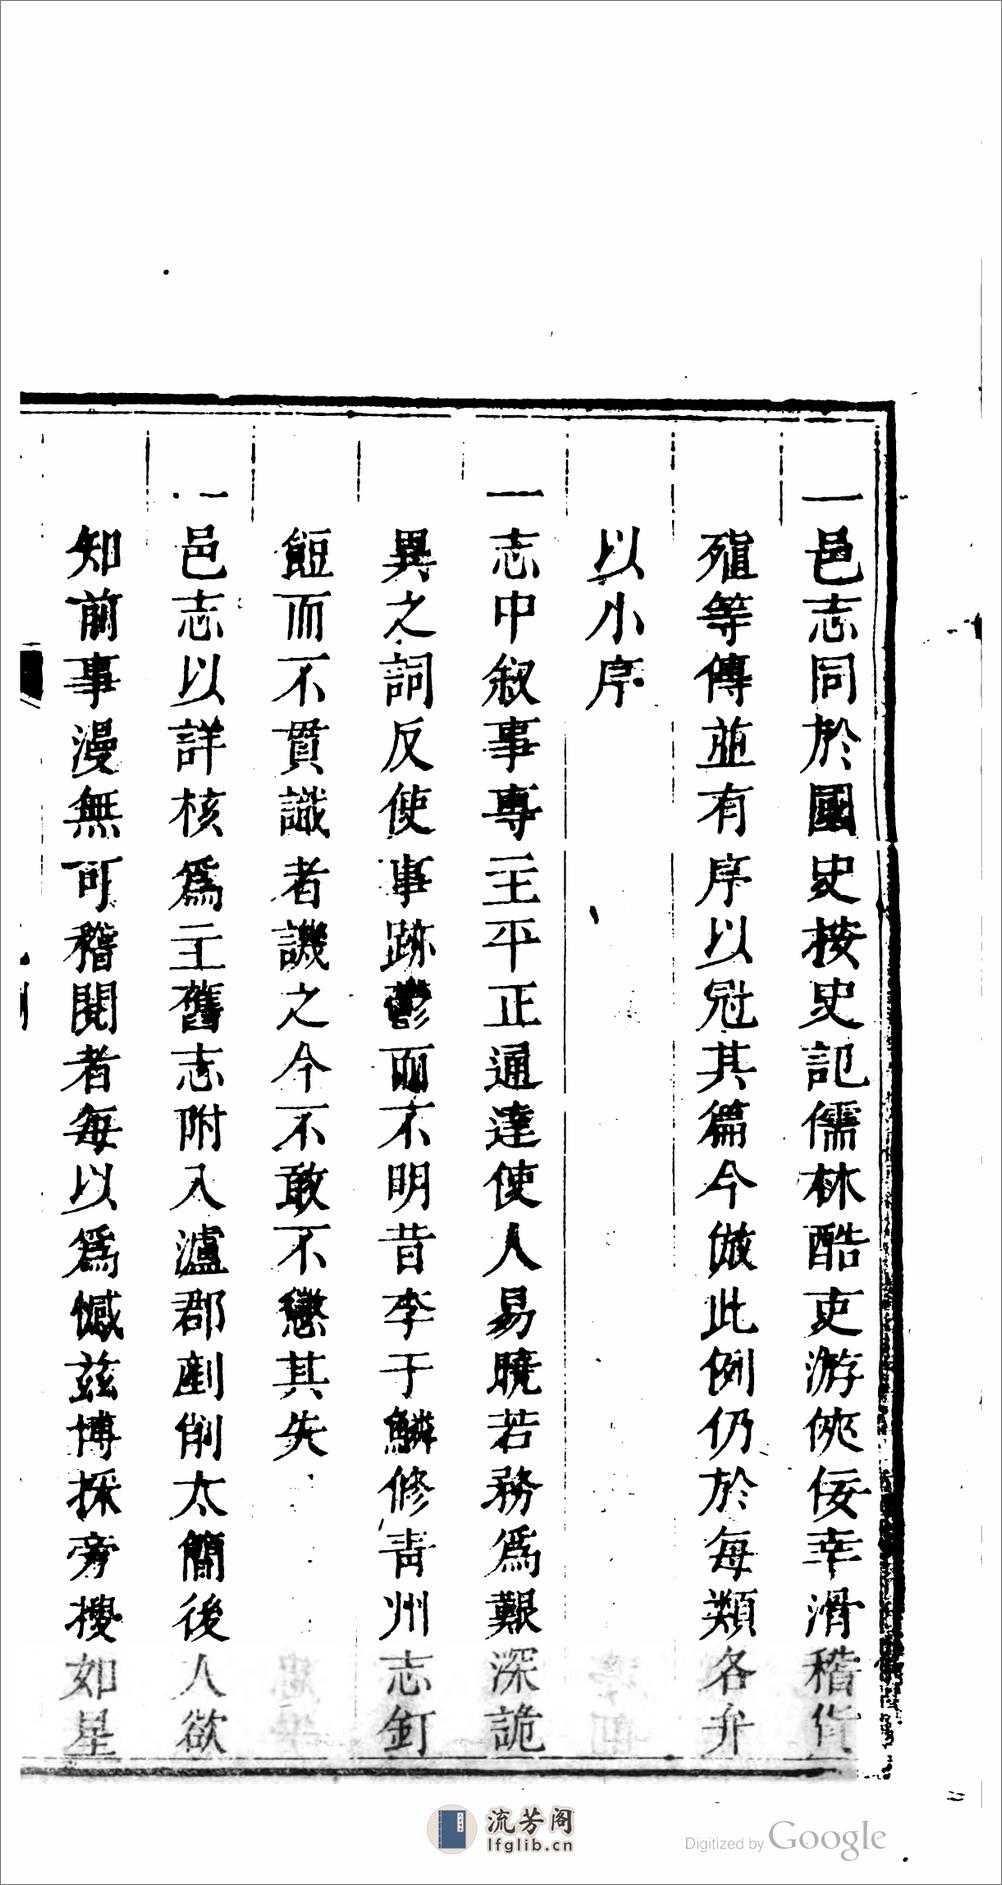 一邑志同於國史按史記儒林酷吏游俠佞幸滑稽貨
殖等傳並有序以冠其篇今倣此例仍於每類各弁
以小序
一志中敘事專主平正通達使人易曉若務爲艱深詭
異之詞反使事跡鬱而不明昔李于鱗修青州志釘
餖而不貫識者譏之今不敢不懲其失
一邑志以詳核爲主舊志附入瀘郡剷削太簡後人欲
知前事漫無可稽閱者每以爲憾茲博採旁搜如星
流芳阁
lfglib.cn
Digitized by Google